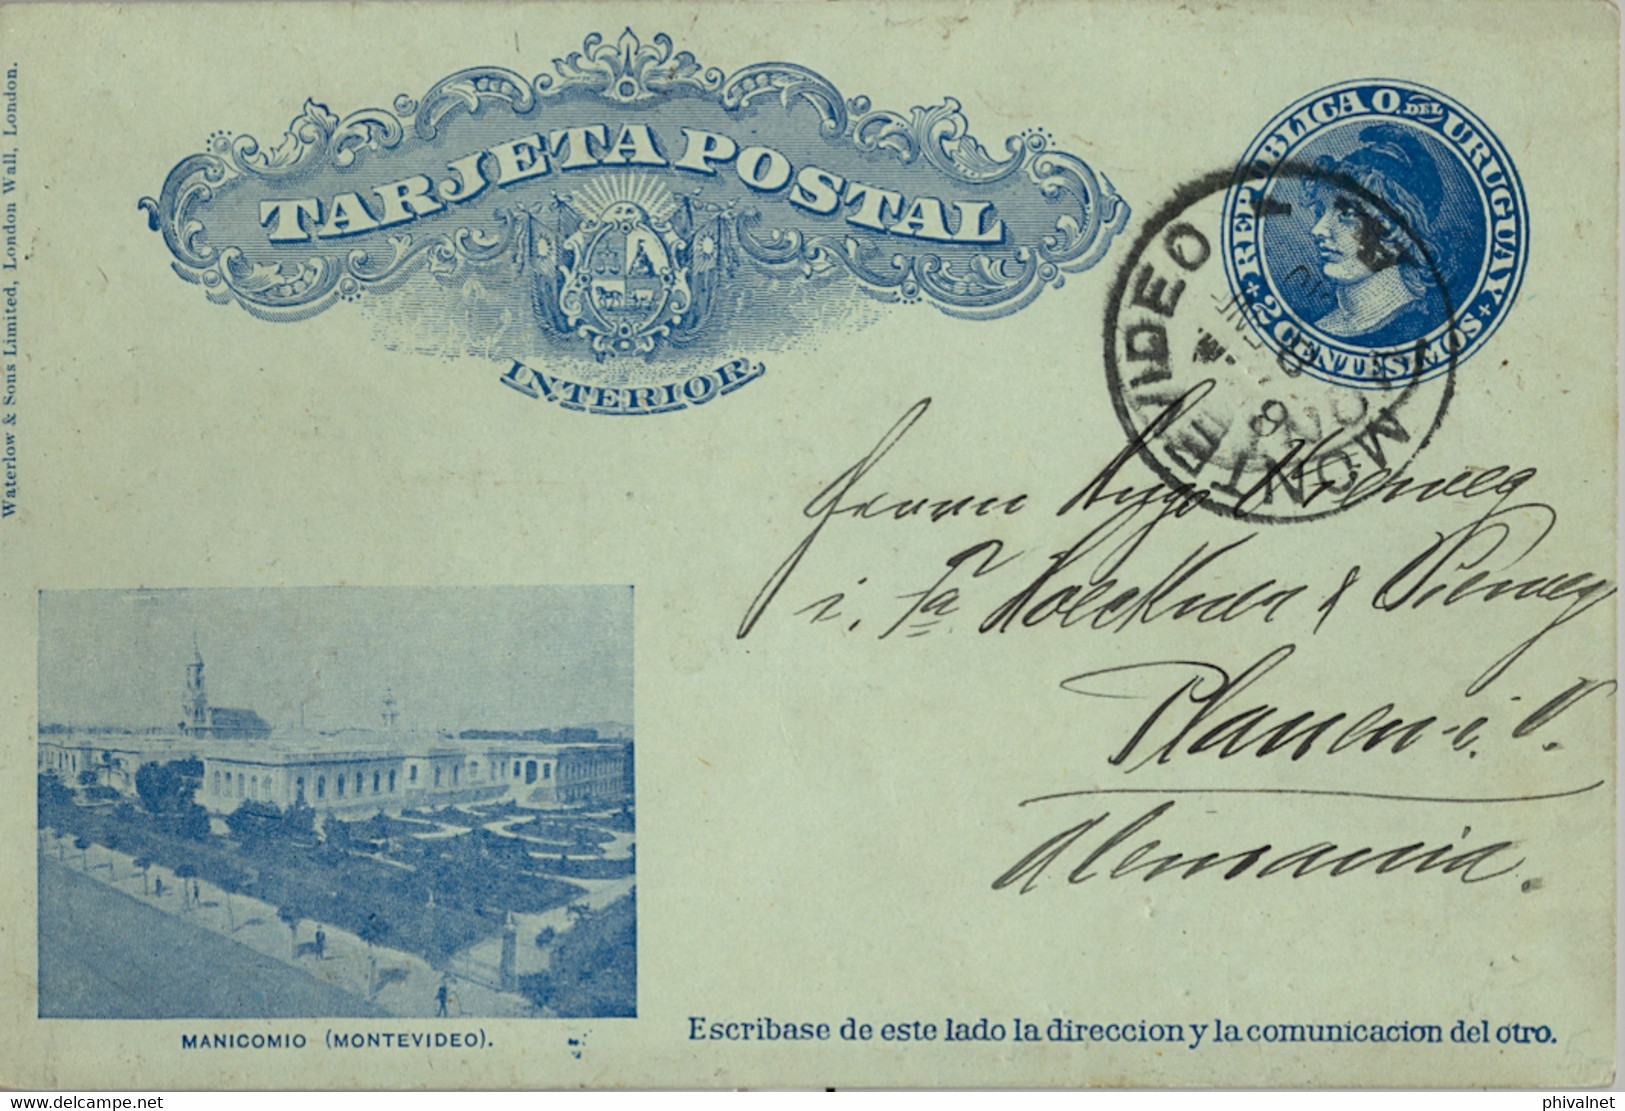 Waterlow & Sons Limited, London Wall, London.
TARJETA POSTAL
INTERIOR.
REPUBLICA O. DEL URUGUAY
2 CENTESIMOS
MONTEVIDEO
Herrn Hugo Vieweg
i. Fa. & Vieweg
Plauen i. V.
Alemania.
MANICOMIO (MONTEVIDEO).
Escribase de este lado la direccion y la comunicacion del otro.
phivalnet